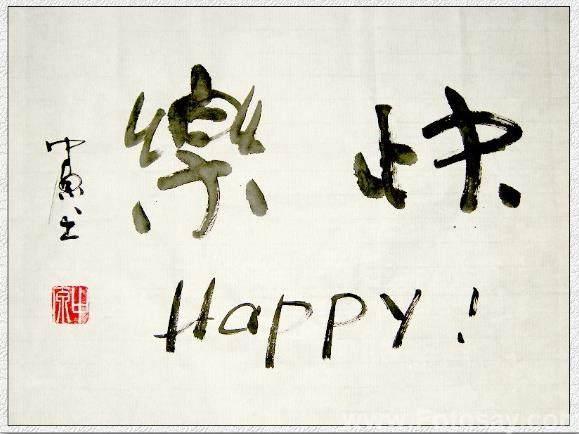 快樂
Happy!
www.Fotosay.com